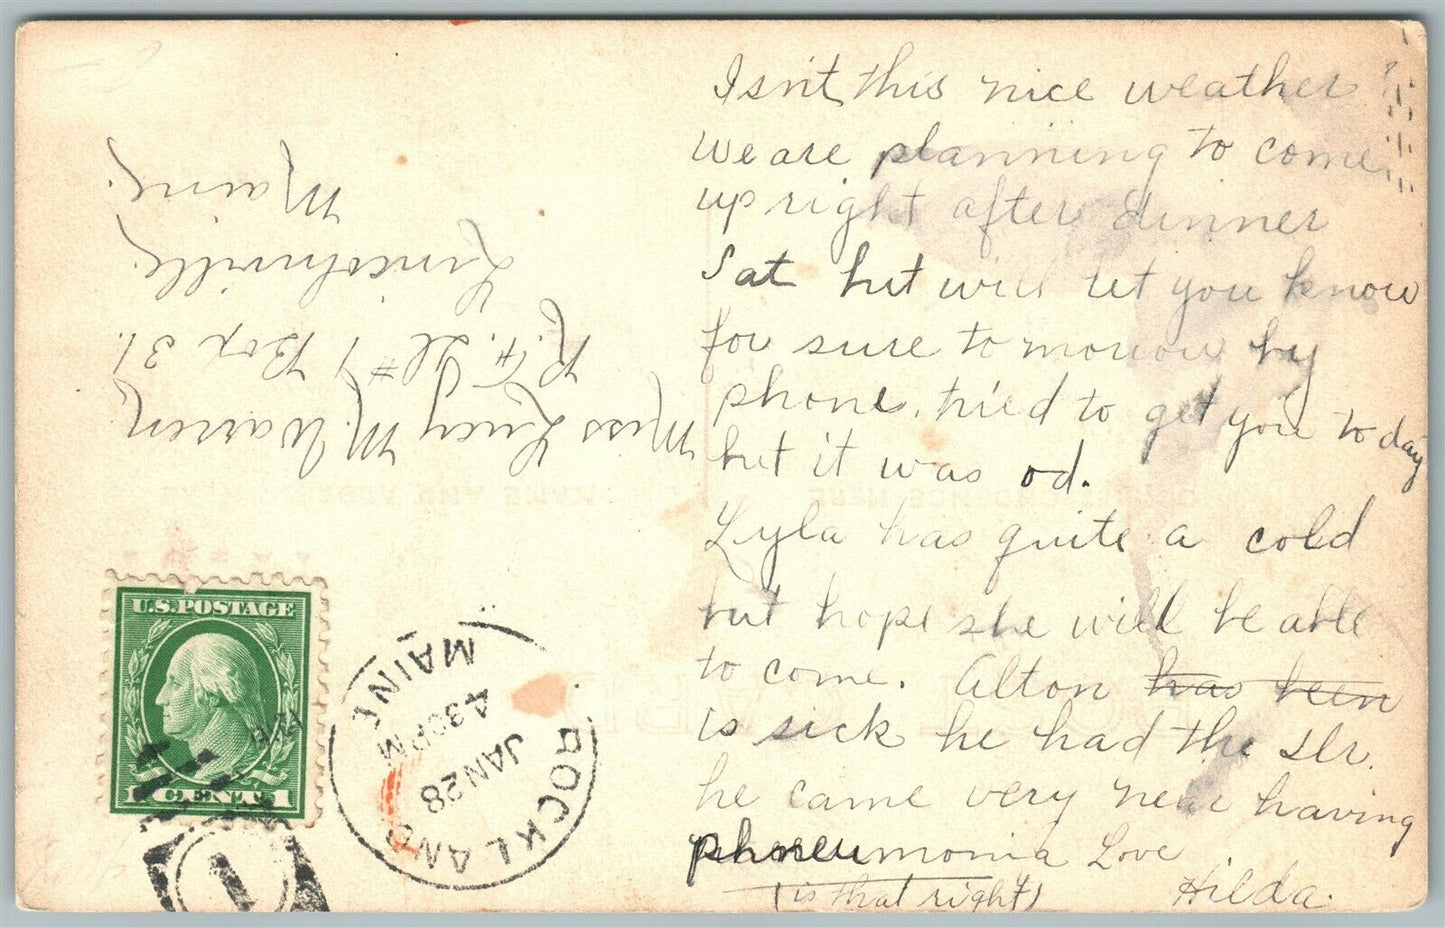 Isn't this nice weather?
we are planning to come
up right after dinner
Sat but will let you know
for sure to morrow by
phone. tried to get you to day
but it was od.
Lyla has quite a cold
but hope she will be able
to come. Alton has been
is sick he had the Dr.
he came very near having
pneumonia Love
(is that right) Hilda.
Miss Lucy M. Warren,
R.F.D. #1 Box 31.
Lincolnville,
Maine.
U.S. POSTAGE
1 CENT 1
ROCKLAND
JAN 28
430 PM
MAINE
1